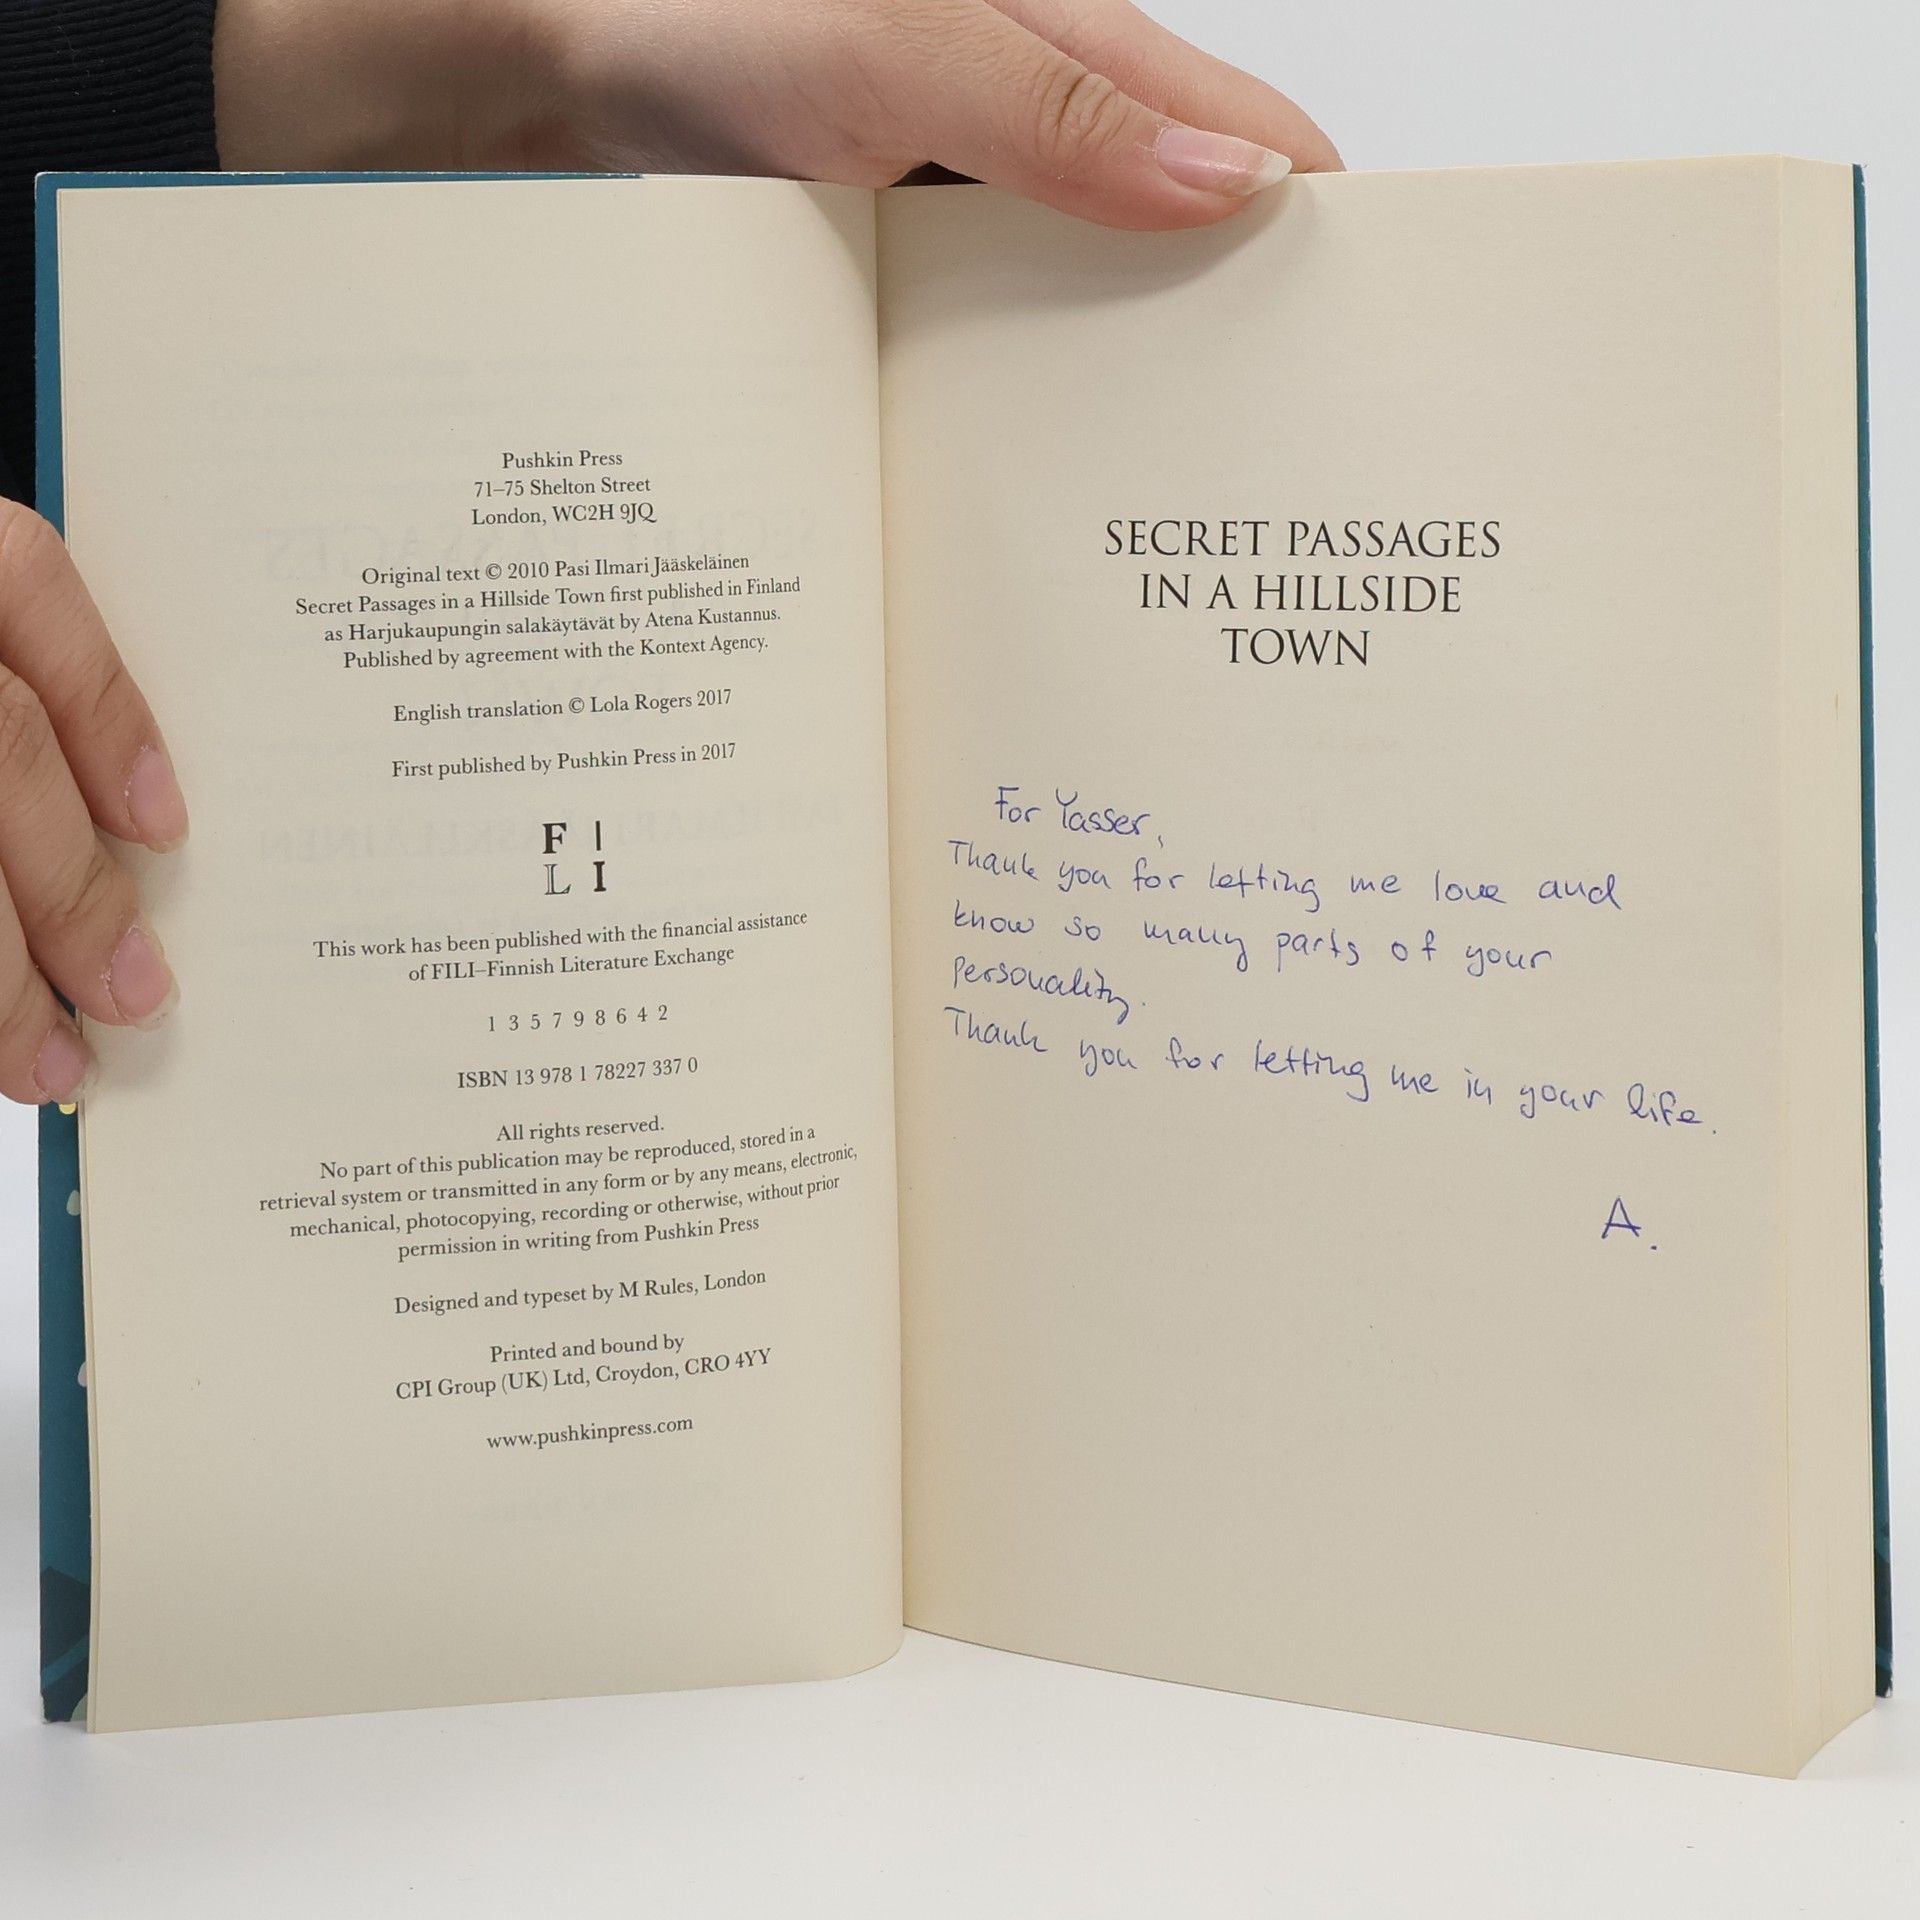 Pushkin Press
71–75 Shelton Street
London, WC2H 9JQ
Original text © 2010 Pasi Ilmari Jääskeläinen
Secret Passages in a Hillside Town first published in Finland
as Harjukaupungin salakäytävät by Atena Kustannus.
Published by agreement with the Kontext Agency.
English translation © Lola Rogers 2017
First published by Pushkin Press in 2017
F I
L I
This work has been published with the financial assistance
of FILI–Finnish Literature Exchange
1 3 5 7 9 8 6 4 2
ISBN 13 978 1 78227 337 0
All rights reserved.
No part of this publication may be reproduced, stored in a
retrieval system or transmitted in any form or by any means, electronic,
mechanical, photocopying, recording or otherwise, without prior
permission in writing from Pushkin Press
Designed and typeset by M Rules, London
Printed and bound by
CPI Group (UK) Ltd, Croydon, CRO 4YY
www.pushkinpress.com
SECRET PASSAGES
IN A HILLSIDE
TOWN
For Yasser,
Thank you for letting me love and
know so many parts of your
personality.
Thank you for letting me in your life.
A.